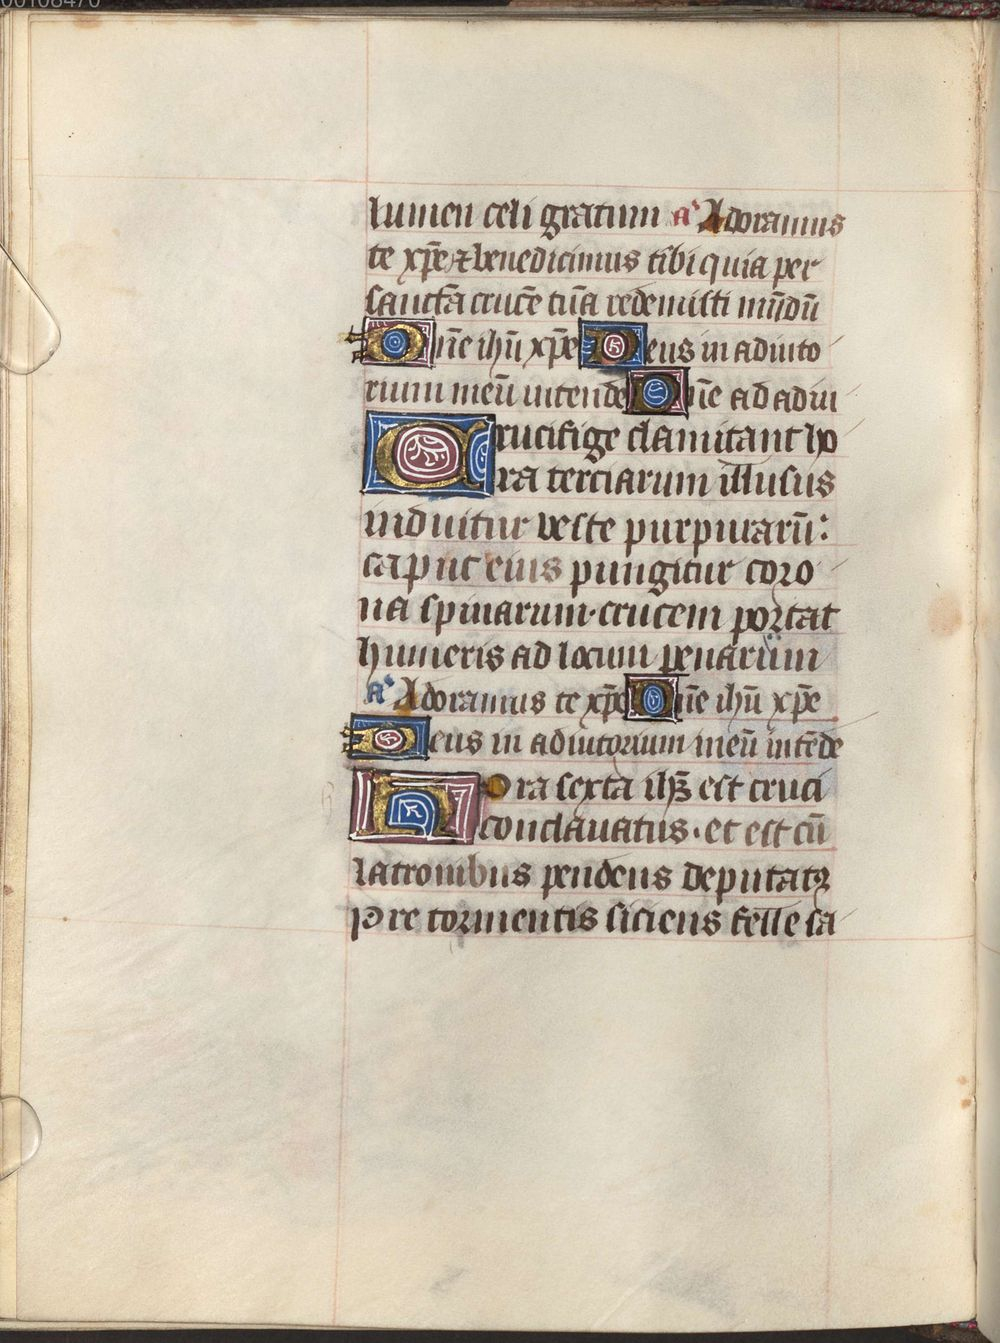 00108470
lumen celi gratum a' Adoramus
te xp̄e ⁊ benedicimus tibi quia per
sanctā crucē tuā redemisti mūdū
Dn̄e ihū xp̄e Deus in adiuto
rium meū intende Dn̄e ad adiu
Crucifige clamitant ho
ra terciarum illusus
induitur veste purpurarū:
caput eius pungitur coro
na spinarum · crucem portat
humeris ad locum penarum
a' Adoramus te xp̄e Dn̄e ihū xp̄e
Deus in adiutorium meū intēde
Hora sexta ihs̄ est cruci
conclauatus · et est cū
latronibus pendens deputatꝯ
Pre tormentis siciens felle sa